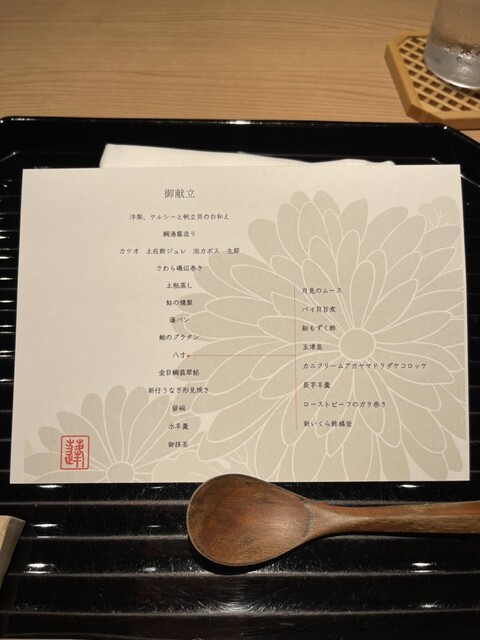 御献立
洋梨、ケルシーと帆立貝の白和え
鯛湯霜造り
カツオ 土佐酢ジュレ 泡カボス 生節
さわら磯辺巻き
土瓶蒸し
鮎の燻製
蓬パン
鮑のグラタン
八寸
金目鯛翡翠餡
新仔うなぎ形見焼き
留碗
水羊羹
御抹茶
月見のムース
バイ貝旨煮
細もずく酢
玉津島
カニクリームアカヤマドリダケコロッケ
長芋羊羹
ローストビーフのガリ巻き
新いくら醉橘釜